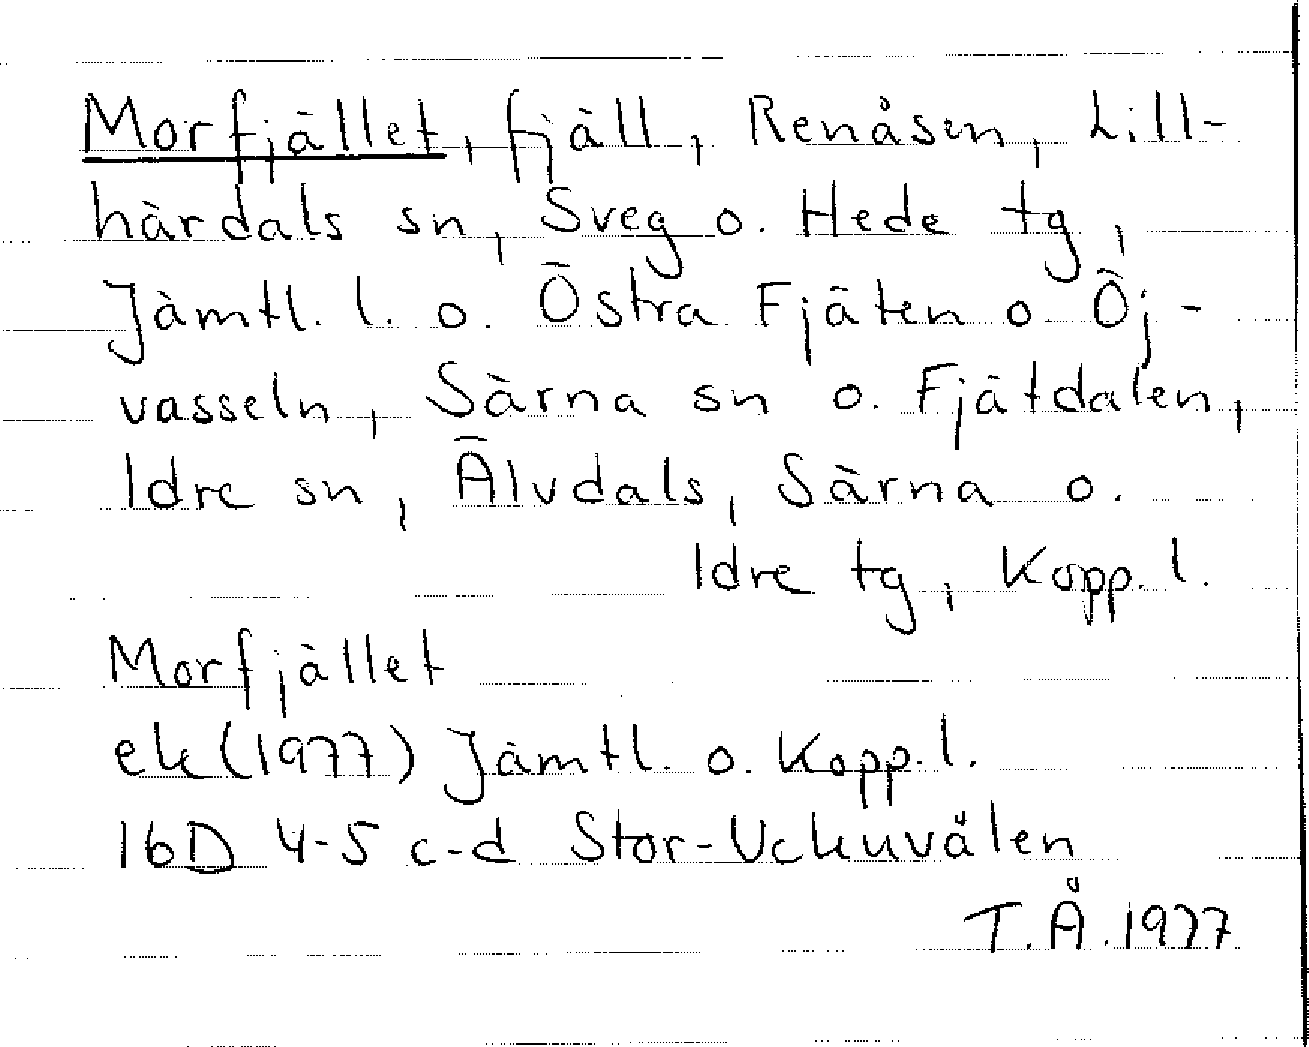 Morfjället, fjäll, Renåsen, Lill-
härdals sn, Sveg o. Hede tg,
Jämtl. l. o. Östra Fjäten o Öj-
vasseln, Särna sn o. Fjätdalen,
Idre sn, Älvdals, Särna o.
Idre tg, Kopp. l.
Morfjället
ek (1977) Jämtl. o. Kopp. l.
16D 4-5 c-d Stor-Uckuvålen
T.Å. 1977